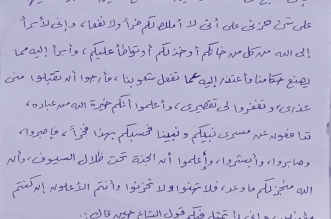 على شئ حزني على أني لا أملك لكم ضراً ولا نفعا، وإني لأبرأ
إلى الله من كل من خانكم أو خذلكم أو تواطأ عليكم، وأبرأ إليه مما
يصنع حكامنا وأعتذر إليه عما تفعل شعوبنا، فأرجوا أن تقبلوا مني
عذري، وتغفروا لي تقصيري، وأعلموا أنكم خيرة الله من عباده،
تدافعون عن مسرى نبيكم ونبينا فحسبكم بهذا فخراً، فاصبروا،
وصابروا، وأبشروا، وأعلموا أن الجنة تحت ظلال السيوف، وأن
الله منجز لكم ما وعد، فلا تهنوا ولا تحزنوا وأنتم الأعلون إن كنتم
مؤمنين، وإني لأتمثل فيكم قول الشاعر حين قال: